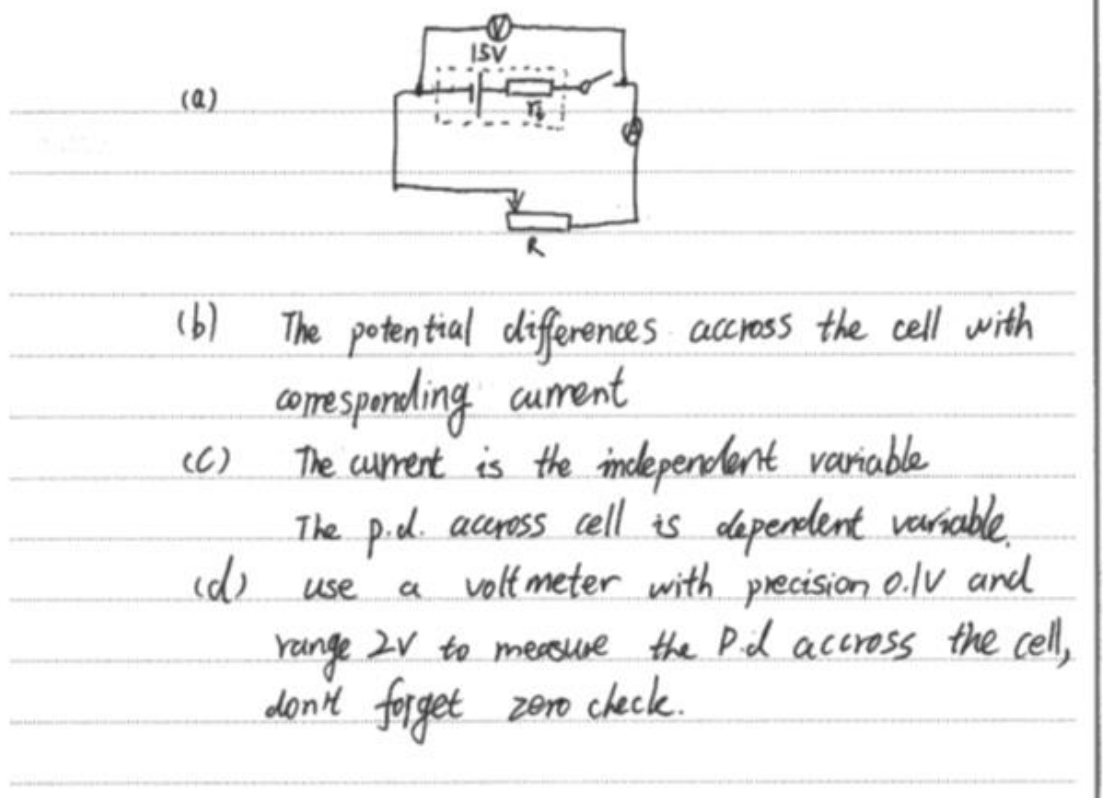 V
1.5V
(a)
r
A
R
(b) The potential differences accross the cell with
corresponding current
(c) The current is the independent variable
The p.d. accross cell is dependent variable.
(d) use a voltmeter with precision 0.1V and
range 2V to measure the P.d accross the cell,
don't forget zero check.